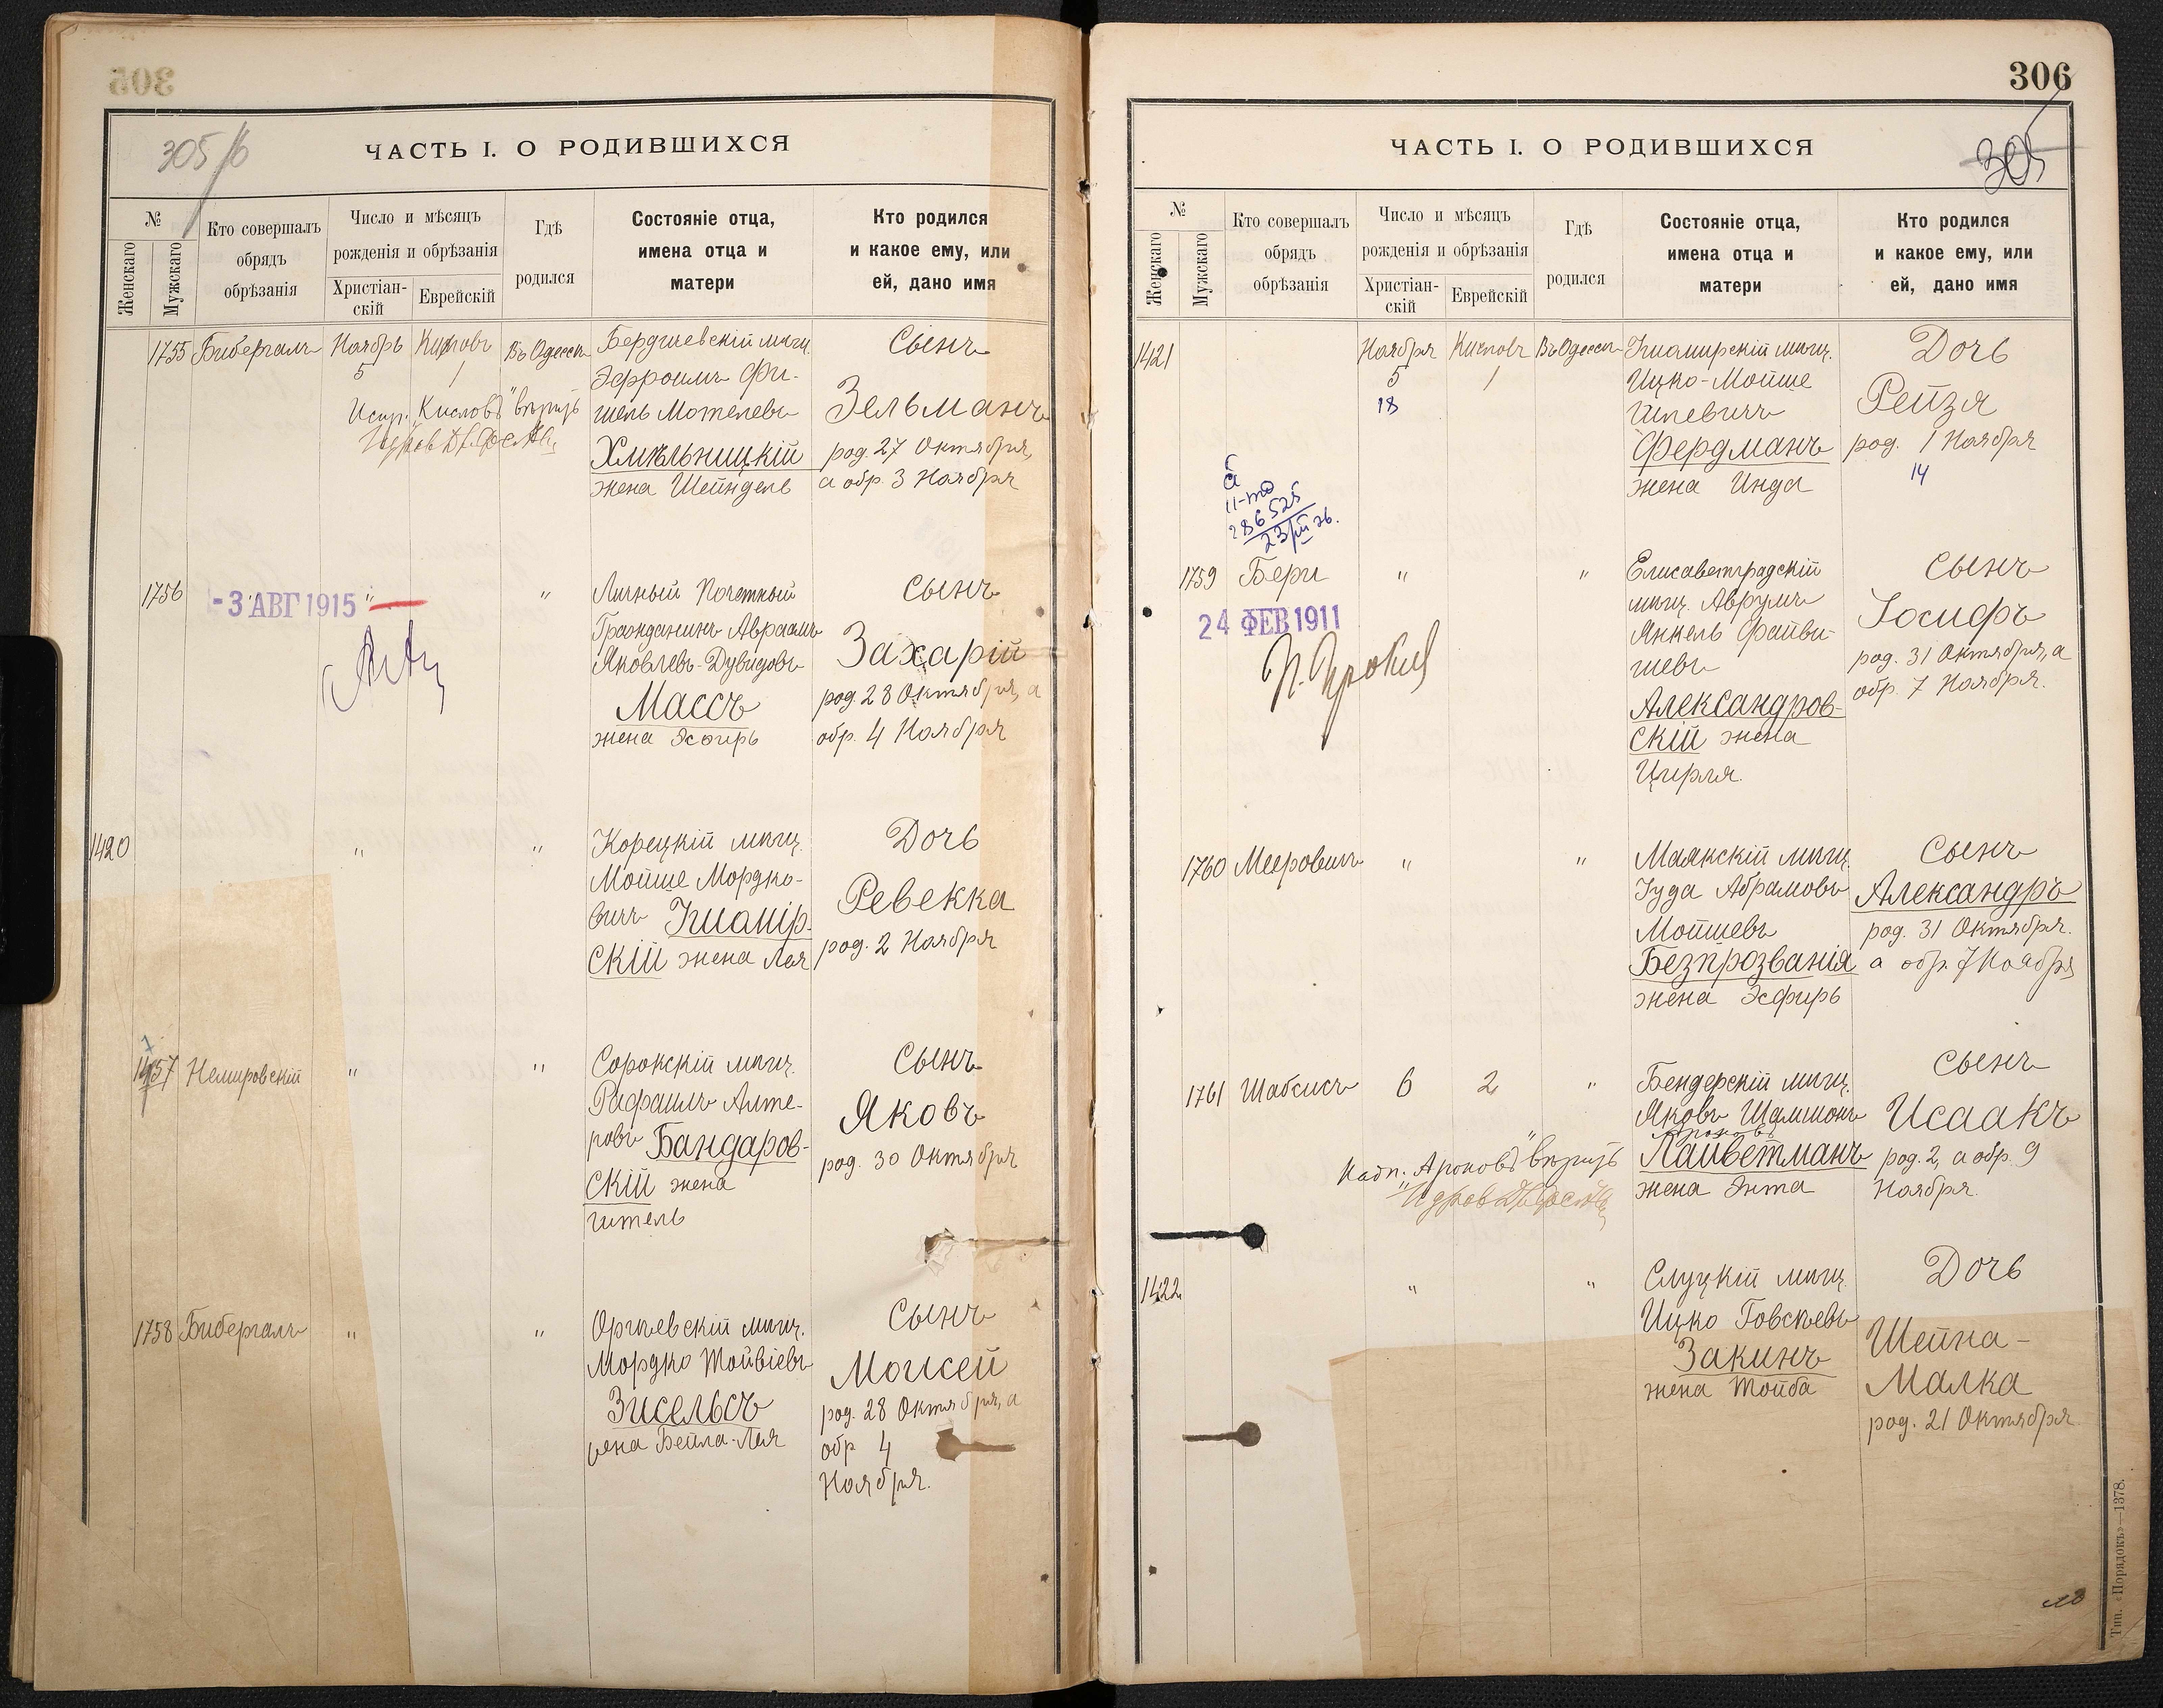 305
305/б
ЧАСТЬ I. О РОДИВШИХСЯ
№
Женскаго
Мужскаго
Кто совершалъ
обрядъ
обрѣзанія
Число и мѣсяцъ
рожденія и обрѣзанія
Христіан-
скій
Еврейскій
Гдѣ
родился
Состояніе отца,
имена отца и
матери
Кто родился
и какое ему, или
ей, дано имя
1755
Бибергалъ
Ноябрь
5
Кислов
1
Въ Одессѣ
Бердичевскій мѣщ.
Эфроимъ Фи-
шель Мотелевъ
Хмѣльницкій
жена Шейндель
Сынъ
Зельманъ
род. 27 Октября,
а обр. 3 Ноября
Испр. "Кисловъ" вѣрно
1756
-3 АВГ 1915
"
"
Личный Почетный
Гражданинъ Авраамъ
Яковлевъ-Дувидовъ
Массъ
жена Эсѳирь
Сынъ
Захарій
род. 28 Октября, а
обр. 4 Ноября
1420
"
"
Корецкій мѣщ.
Мойше Мордко-
вичъ Житомір-
скій жена Лея
Дочь
Ревекка
род. 2 Ноября
1757
Немировскій
"
"
Сорокскій мѣщ.
Рафаилъ Алте-
ровъ Бандаров-
скій жена
Гитель
Сынъ
Яковъ
род. 30 Октября
1758
Бибергалъ
"
"
Оргѣевскій мѣщ.
Мордко Тойвіевъ
Зисельсъ
жена Бейла-Лея
Сынъ
Моисей
род. 28 Октября, а
обр 4
Ноября.
306
305
ЧАСТЬ I. О РОДИВШИХСЯ
№
Женскаго
Мужскаго
Кто совершалъ
обрядъ
обрѣзанія
Число и мѣсяцъ
рожденія и обрѣзанія
Христіан-
скій
Еврейскій
Гдѣ
родился
Состояніе отца,
имена отца и
матери
Кто родился
и какое ему, или
ей, дано имя
1421
Ноября
5
18
Кислов
1
Въ Одессѣ
мѣщ.
Ицко-Мойше
Фердманъ
жена Инда
Дочь
Рейзя
род. 1 Ноября
14
11-то
286525
23/III 26.
1759
Бери
24 ФЕВ 1911
"
"
Елисаветградскій
мѣщ. Аврумъ
Янкель Файви-
шевъ
Александров-
скій жена
Цирля.
Сынъ
Іосифъ
род. 31 Октября, а
обр. 7 Ноября.
1760
Мееровичъ
"
"
Маякскій мѣщ.
Іуда Абрамовъ
Мойшевъ
Безпрозванія
жена Эсфирь
Сынъ
Александръ
род. 31 Октября.
а обр. 7 Ноября
1761
Шабсисъ
6
2
"
Бендерскій мѣщ.
Яковъ Шамшонъ
Ароновъ
Лайветманъ
жена Энта
Сынъ
Исаакъ
род. 2, а обр. 9
Ноября.
Надп: "Ароновъ" вѣрно
1422
"
"
Слуцкій мѣщ.
Ицко Товсѣевъ
Закинъ
жена Тойба
Дочь
Шейна-
Малка
род. 21 Октября.
Тип. «Порядокъ»—1378.